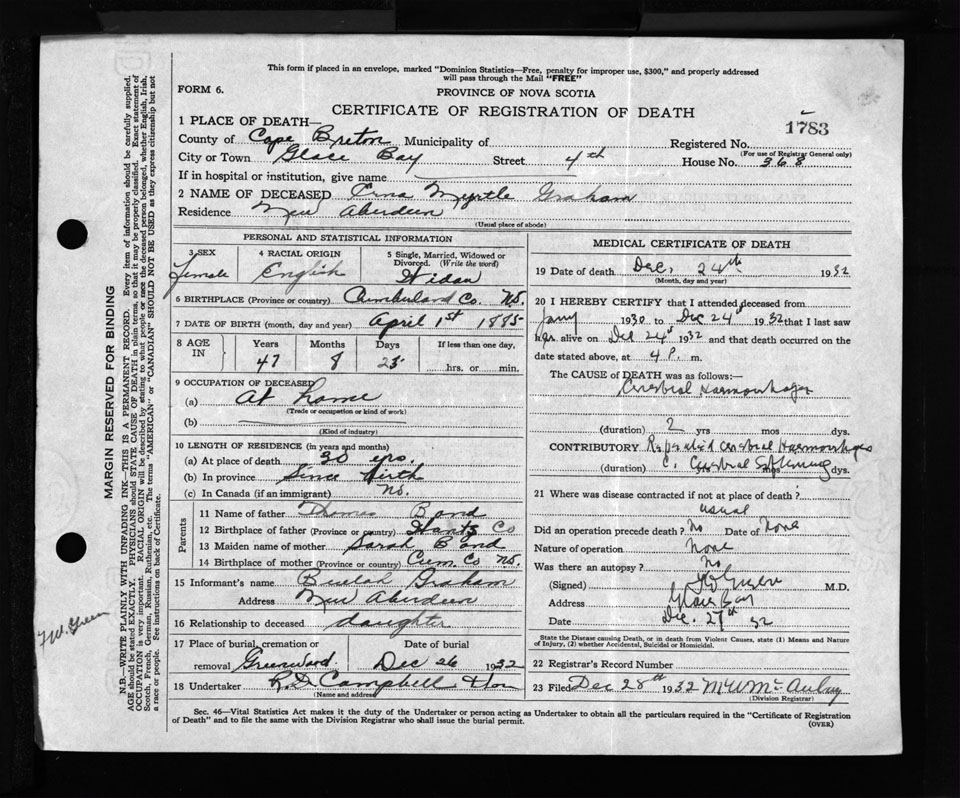 This form if placed in an envelope, marked "Dominion Statistics—Free, penalty for improper use, $300," and properly addressed
will pass through the Mail "FREE"
FORM 6.
PROVINCE OF NOVA SCOTIA
CERTIFICATE OF REGISTRATION OF DEATH
1783
1 PLACE OF DEATH—
County of Cape Breton Municipality of Registered No.
(For use of Registrar General only)
City or Town Glace Bay Street 4th House No. 368
If in hospital or institution, give name
2 NAME OF DECEASED Erna Myrtle Graham
Residence New Aberdeen
(Usual place of abode)
PERSONAL AND STATISTICAL INFORMATION
3 SEX 4 RACIAL ORIGIN 5 Single, Married, Widowed or Divorced. (Write the word)
female English Widow
6 BIRTHPLACE (Province or country) Cumberland Co. N.S.
7 DATE OF BIRTH (month, day and year) April 1st 1885
8 AGE IN Years Months Days If less than one day,
47 8 23 hrs. or min.
9 OCCUPATION OF DECEASED
(a) At home
(Trade or occupation or kind of work)
(b)
(Kind of industry)
10 LENGTH OF RESIDENCE (in years and months)
(a) At place of death 30 yrs.
(b) In province Since Birth
(c) In Canada (if an immigrant) No.
Parents
11 Name of father Thomas Bond
12 Birthplace of father (Province or country) Hants Co
13 Maiden name of mother Sarah Bond
14 Birthplace of mother (Province or country) Cum. Co N.S.
15 Informant's name Beulah Graham
Address New Aberdeen
16 Relationship to deceased daughter
17 Place of burial, cremation or removal Greenwood Date of burial Dec 26 1932
18 Undertaker R.D. Campbell & Son
(Name and address)
MEDICAL CERTIFICATE OF DEATH
19 Date of death Dec. 24th 1932
(Month, day and year)
20 I HEREBY CERTIFY that I attended deceased from
Jany 1930 to Dec 24th 1932 that I last saw
her alive on Dec 24th 1932 and that death occurred on the
date stated above, at 4 P. m.
The CAUSE of DEATH was as follows:—
Cerebral Haemorrhage
(duration) 2 yrs mos dys.
CONTRIBUTORY Repeated cerebral Haemorrhages
(duration) c. Cerebral mos dys.
21 Where was disease contracted if not at place of death?
usual
Did an operation precede death? No Date of None
Nature of operation None
Was there an autopsy? No
(Signed) Green M.D.
Address Glace Bay
Date Dec. 27th 32
State the Disease causing Death, or in death from Violent Causes, state (1) Means and Nature
of Injury, (2) whether Accidental, Suicidal or Homicidal.
22 Registrar's Record Number
23 Filed Dec 28th 1932 McAulay
(Division Registrar)
Sec. 46—Vital Statistics Act makes it the duty of the Undertaker or person acting as Undertaker to obtain all the particulars required in the "Certificate of Registration
of Death" and to file the same with the Division Registrar who shall issue the burial permit.
(OVER)
MARGIN RESERVED FOR BINDING
N.B.—WRITE PLAINLY WITH UNFADING INK—THIS IS A PERMANENT RECORD. Every item of information should be carefully supplied.
AGE should be stated EXACTLY. PHYSICIANS should STATE CAUSE OF DEATH in plain terms, so that it may be properly classified. Exact statement of
OCCUPATION is very important. RACIAL ORIGIN will be described by stating to what people or race the deceased person belonged, whether English, Irish,
Scotch, French, German, Russian, Ruthenian, etc. The terms "AMERICAN" or "CANADIAN" SHOULD NOT BE USED as they express citizenship but not
a race or people. See instructions on back of Certificate.
Green